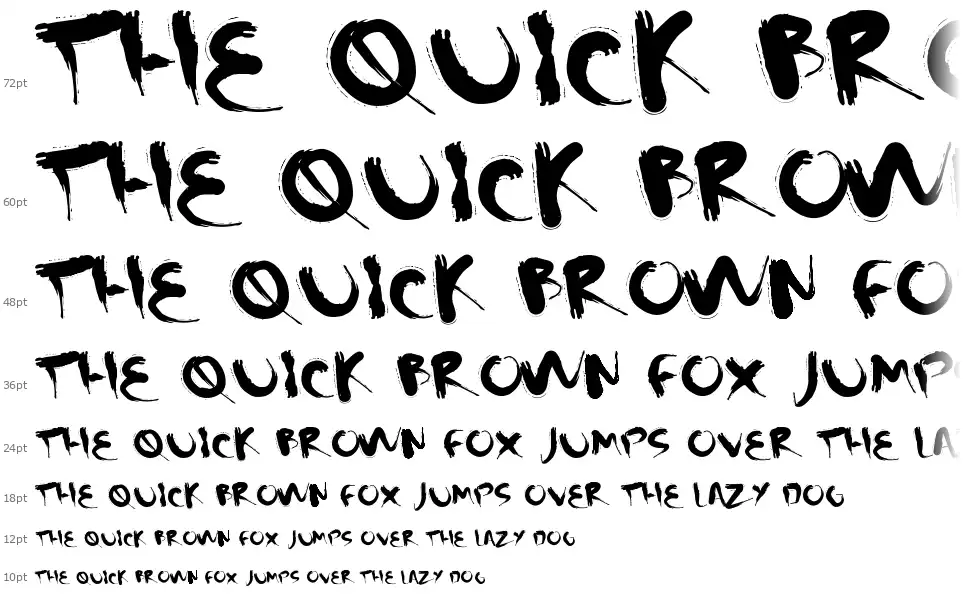 72pt THE QUICK BR
60pt THE QUICK BROWN
48pt THE QUICK BROWN FO
36pt THE QUICK BROWN FOX JUMP
24pt THE QUICK BROWN FOX JUMPS OVER THE LA
18pt THE QUICK BROWN FOX JUMPS OVER THE LAZY DOG
12pt THE QUICK BROWN FOX JUMPS OVER THE LAZY DOG
10pt THE QUICK BROWN FOX JUMPS OVER THE LAZY DOG